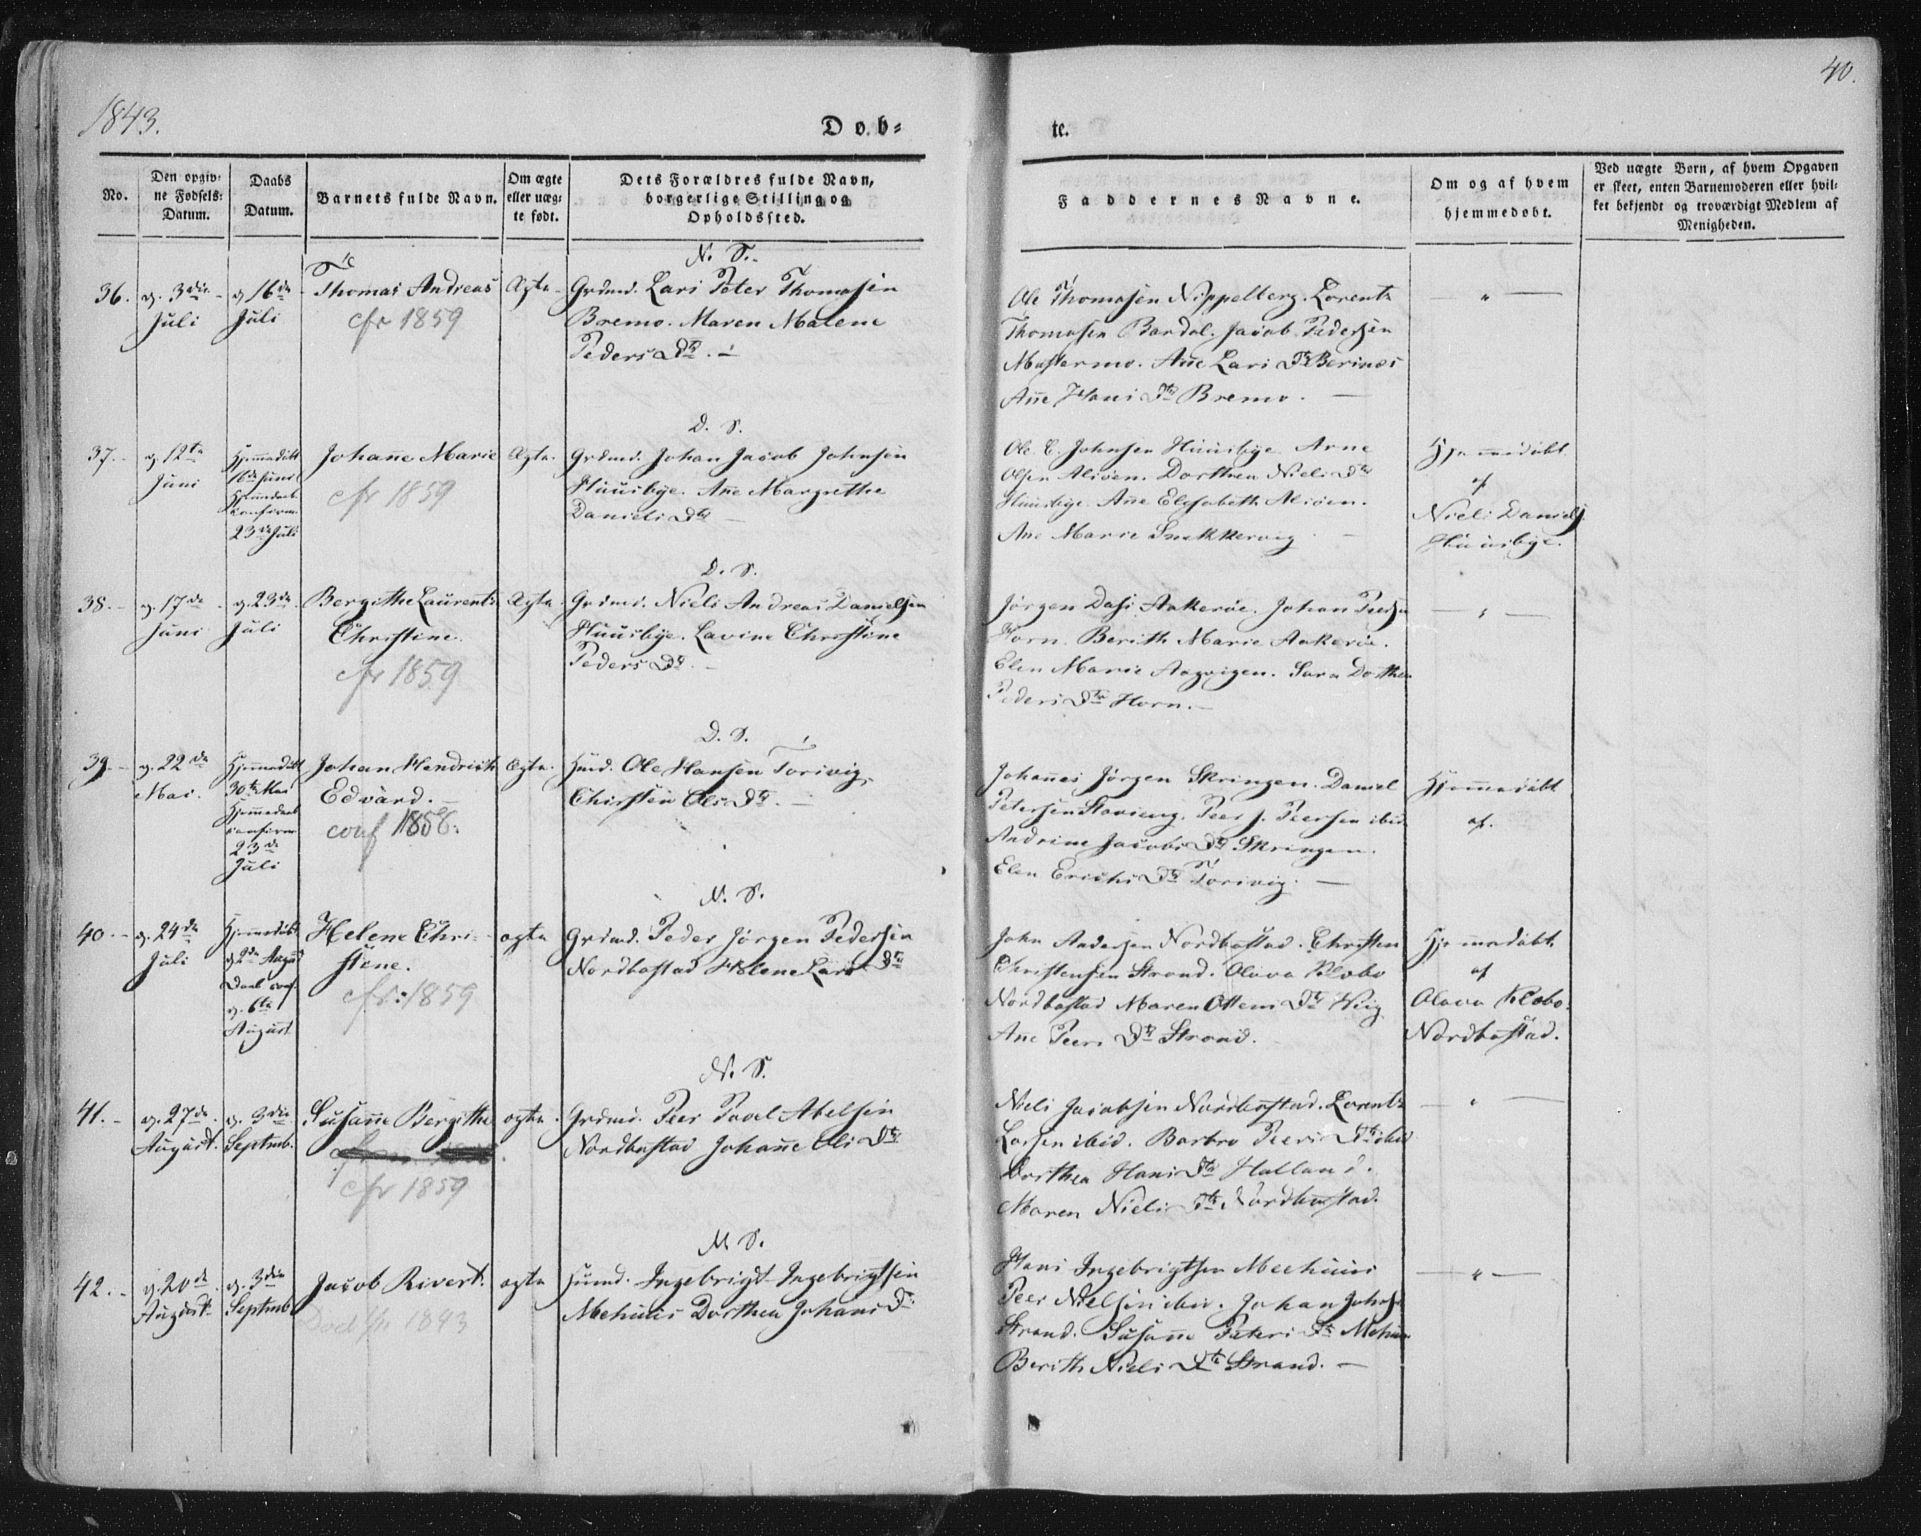 1843.
40.
Døb-
te.
No.
Den opgiv-
ne Fødsels-
Datum.
Daabs
Datum.
Barnets fulde Navn.
Om ægte
eller uæg-
te født.
Dets Forældres fulde Navn,
borgerlige Stilling og
Opholdssted.
Faddernes Navne.
Om og af hvem
hjemmedøbt.
Ved uægte Børn, af hvem Opgaven
er skeet, enten Barnemoderen eller hvil-
ket bekjendt og troværdigt Medlem af
Menigheden.
N. S.
36.
3die
Juli
16de
Juli
Thomas Andreas
cfr 1859
Ægte
Grdmd. Lars Peter Thomasen
Bremo. Maren Malene
Peders Dtr.
Ole Thomasen Nippelberg. Lorentz
Thomasen Bardal. Jacob Pedersen
Mastermo. Ane Lars Dtr Berines
Ane Hans Dtr Bremo.
D. S.
37.
12te
Juni
Hjemmedøbt
16de Juni
Hjemmedaab
Konfirm.
23de Juli
Johanne Marie
cfr 1859
Ægte
Grdmd. Johan Jacob Johnsen
Huusbye. Ane Margrethe
Daniels Dtr
Ole E. Johnsen Huusbye Arne
Olsen Alsøen. Dorthea Niels Dtr
Huusbye. Ane Elisabeth Alsøen.
Ane Marie Snekkervig
Hjemmedøbt
af
Niels Daniels.
Huusbye.
D. S.
38.
17de
Juni
23de
Juli
Bergithe Laurents
Christine.
cfr 1859
Ægte
Grdmd. Niels Andreas Danielsen
Huusbye. Lavine Christine
Peders Dtr.
Jørgen Dass Aakerøe. Johan Peersen
Horn. Berith Marie Aakerøe.
Elen Marie Aagvigen. Sara Dorthea
Peders Dtr Horn.
D. S.
39.
22de
Mai.
Hjemmedøbt
30te Mai
Hjemmedaab
confirm
23de
Juli
Johan Hendrich
Edvard.
conf 1858.
Ægte.
Huusmd. Ole Hansen Torsvig
Chirsten Ols Dtr.
Johannes Jørgen Skringen. Daniel
Petersen Stavseng. Peer J. Peersen ibid.
Andrine Jacobs Dtr Skringen.
Elen Erichs Dtr Torsvig.
Hjemmedøbt
af.
N. S.
40.
24de
Juli
Hjemmedøbt
2den August
Daab conf.
6te
August
Helene Chri-
stine.
cfr: 1859
ægte
Grdmd. Peder Jørgen Pedersen
Nordbostad Helene Lars Dtr
John Andersen Nordbostad. Christen
Christensen Strand. Olava Klobo
Nordbostad Maren Ottems Dtr Viig
Ane Peers Dtr Strand.
Hjemmedøbt
af
Olava Klobo
Nordbostad.
N. S.
41.
27de
August.
3die
Septmb.
Susanne Bergithe
cfr 1859
ægte
Grdmd. Peer Povel Abelsen
Nordbostad Johanne Ols Dtr
Niels Jacobsen Nordbostad. Lorentz
Larsen ibid. Barbro Peers Dtr ibid
Dorthea Hans Dtr Halland.
Maren Niels Dtr Nordbostad.
M. S.
42.
20de
August.
3die
Septmb
Jacob Rivert.
Død 1843
ægte
Huusmd. Ingebrigt Ingebrigtsen
Mehuus Dorthea Johans Dtr
Hans Ingebrigtsen Meehuus
Peer Nielsen ibid. Johan Johns.
Strand. Susanne Peters Dtr Mehuus
Berith Niels Dtr Strand.